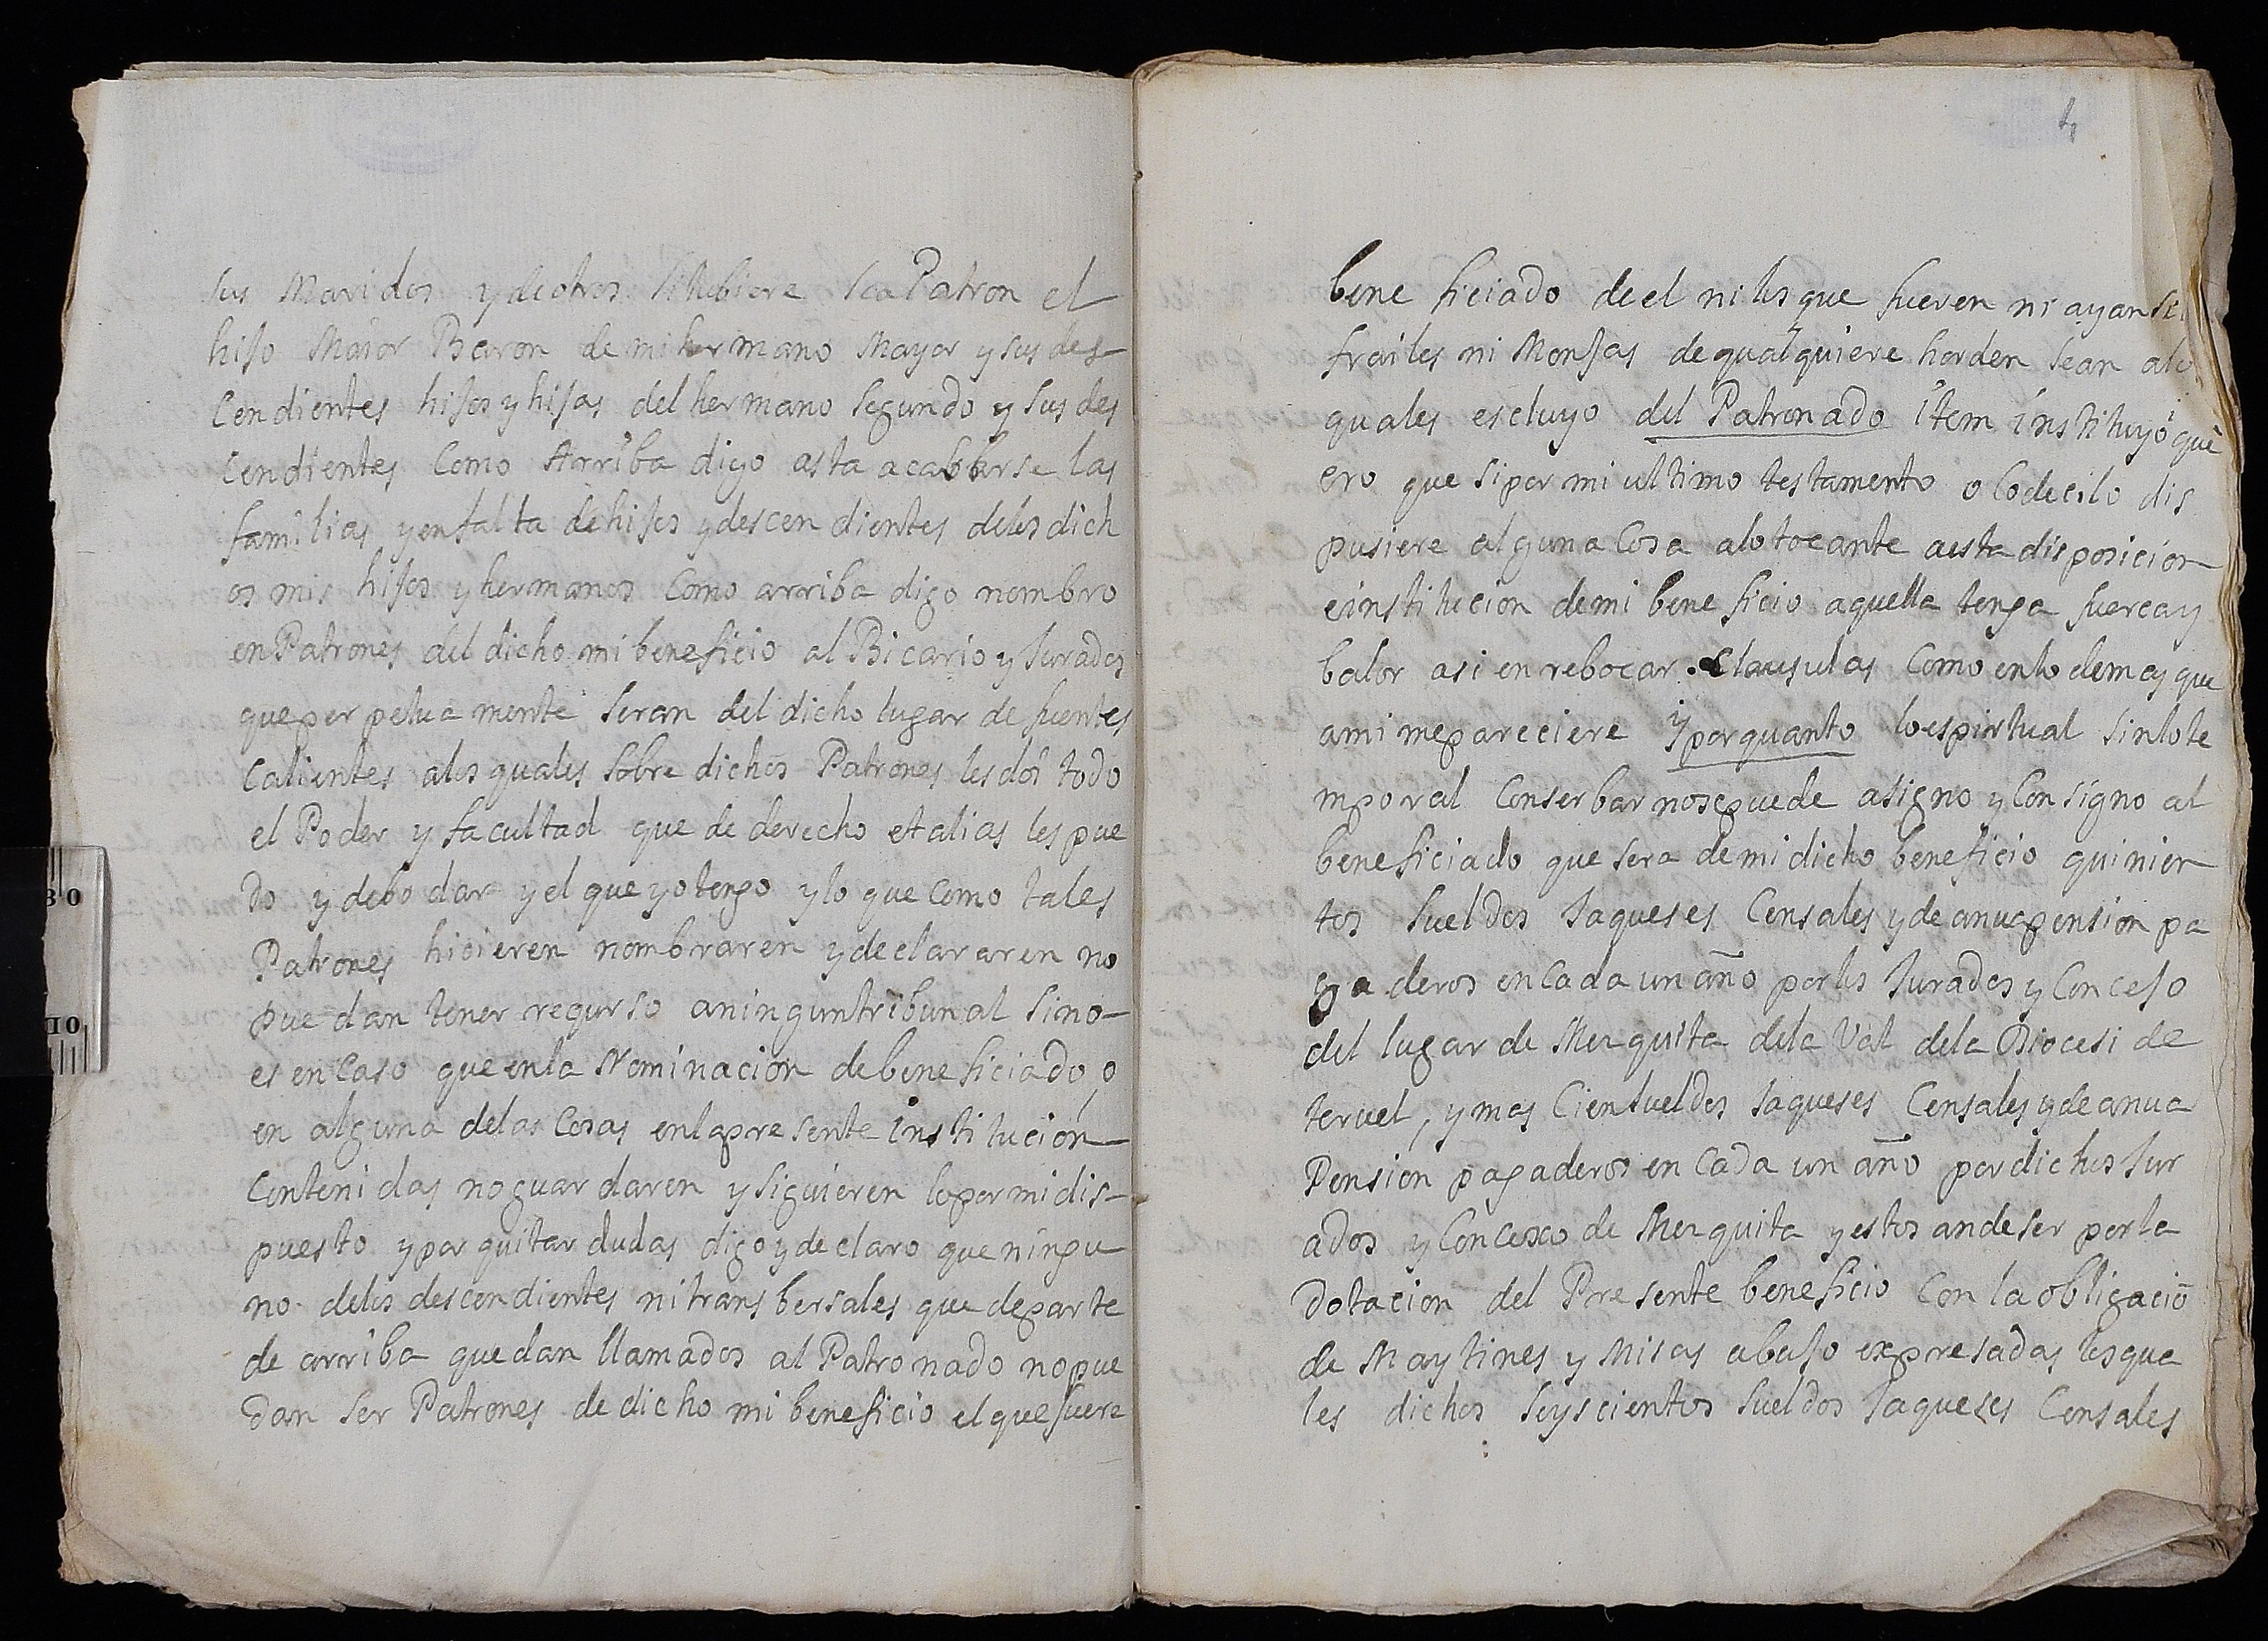 sus Maridos y de otros si tubiere sea Patron el
hijo Maior Baron de mi hermano Mayor y sus des-
cendientes hijos y hijas del hermano segundo y sus des
cendientes Como Arriba digo asta acabbarse las
familias y en falta de hijos y descendientes de los dich
os mis hijos y hermanos Como arriba digo nombro
en Patrones del dicho mi beneficio al Bicario y Jurados
que perpetua mente seran del dicho lugar de fuentes
Calientes a los quales sobre dichos Patrones les doi todo
el Poder y facultad que de derecho et alias les pue
do y debo dar y el que yo tengo y lo que como tales
Patrones hicieren nombraren y declararen no
puedan tener regurso a ningun tribunal sino-
es en Caso que en la Nominacion de beneficiado, o
en alguna de las Cosas en la presente institucion-
Contenidas no guardaren y siguieren lo por mi dis-
puesto y por quitar dudas digo y declaro que ningu
no de los descendientes ni transbersales que de parte
de arriba quedan llamados al Patronado no pue
dan ser Patrones de dicho mi beneficio el que fuere
4
bene ficiado de el ni los que fueren ni ayan si
frailes ni Monjas de qualquiere horden sean a lo
quales escluyo del Patronado item instituyo i qui
ero que si por mi ultimo testamento o Codecilo dis
pusiere alguna Cosa a lo tocante a esta disposicion
e institucion de mi bene ficio aquella tenga fuerca y
balor asi en rebocar clausulas Como en lo demas que
a mi me pareciere y por quanto lo espirtual sin lo te
mporal Conserbar no se puede asigno y Consigno al
beneficiado que sera de mi dicho beneficio quinien
tos sueldos Jaqueses Censales y de anua pension pa
ga deros en Cada un año por los Jurados y Concejo
del lugar de Mezquita de la Val de la Diocesi de
teruel, y mas Cien sueldos Jaqueses Censales y de anua
Pension pagaderos en Cada un año por dichos Jur
ados y Concexo de Mezquita y estos an de ser por la
Dotacion del Presente beneficio Con la obligaciō
de Maytines y Misas abajo expresadas los qua
les dichos seyscientos sueldos Jaqueses Censales